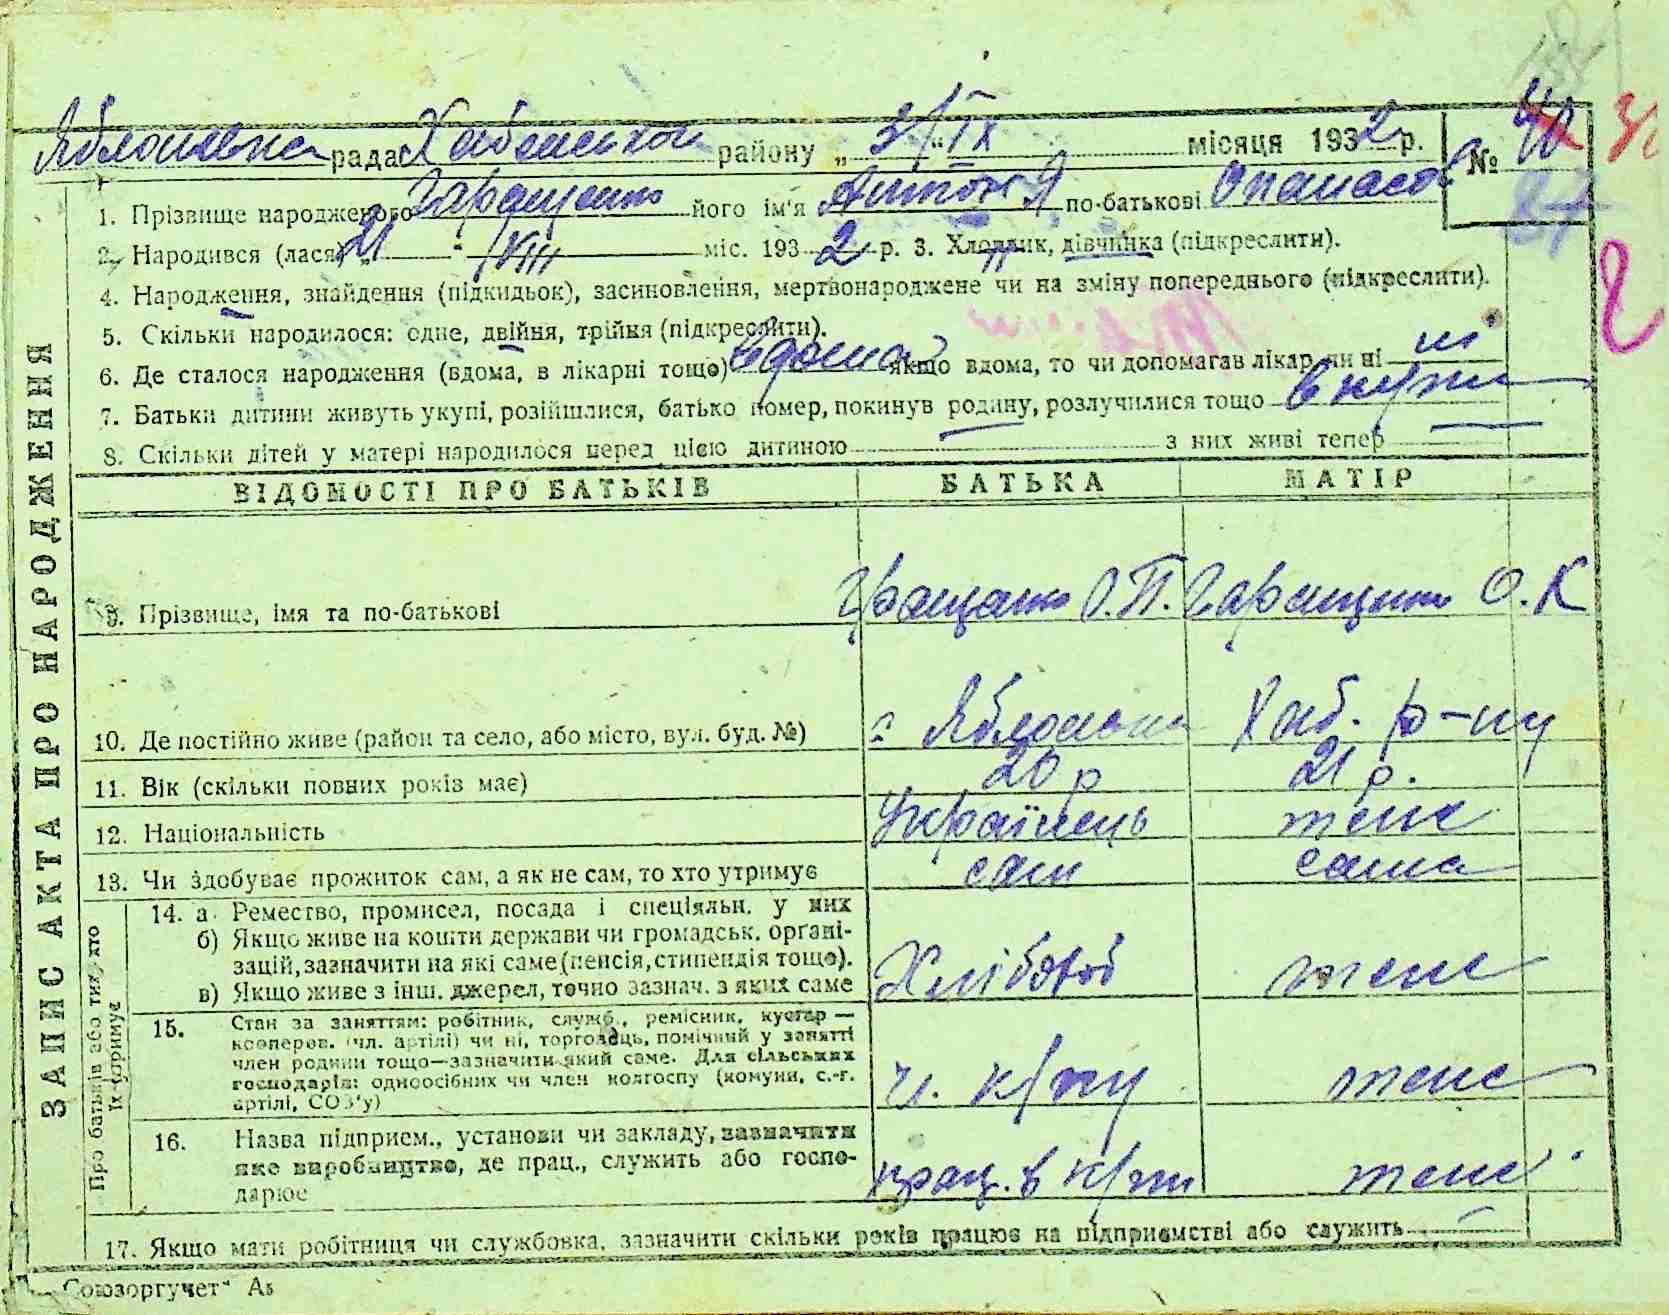 Яблоновка рада Хабенської району „ 3/ІХ місяця 1932 р. № 40
1. Прізвище народженого Гаращенко його ім'я Антон я по-батькові Опанасов
2. Народився (лася) „21 " VIII міс. 1932 р. 3. Хлопчик, дівчинка (підкреслити).
4. Народження, знайдення (підкидьок), засиновлення, мертвонароджене чи на зміну попереднього (підкреслити).
5. Скільки народилося: одне, двійня, трійня (підкреслити).
6. Де сталося народження (вдома, в лікарні тощо) вдома якщо вдома, то чи допомагав лікар чи ні ні
7. Батьки дитини живуть укупі, розійшлися, батько помер, покинув родину, розлучилися тощо вкупі
8. Скільки дітей у матері народилося перед цією дитиною з них живі тепер
ЗАПИС АКТА ПРО НАРОДЖЕННЯ
ВІДОМОСТІ ПРО БАТЬКІВ БАТЬКА МАТІР
9. Прізвище, імя та по-батькові Гращенко О.П. Гаращенко О.К
10. Де постійно живе (район та село, або місто, вул. буд. №) с Яблонька Хаб. р-ну
11. Вік (скільки повних років має) 20 р 21 р.
12. Національність Українець теж
13. Чи здобуває прожиток сам, а як не сам, то хто утримує сам сама
Про батьків або тих, хто їх утримує
14. а Ремество, промисел, посада і спеціяльн. у них
б) Якщо живе на кошти держави чи громадськ. організацій, зазначити на які саме (пенсія, стипендія тощо).
в) Якщо живе з інш. джерел, точно зазнач. з яких саме
Хлібороб теж
15. Стан за заняттям: робітник, служб., ремісник, кустар —
кооперов. (чл. артілі) чи ні, торговець, помічний у занятті
член родини тощо—зазначити який саме. Для сільських
господарів: одноосібних чи член колгоспу (комуни, с.-г.
артілі, СОЗ'у)
ч. к/пу теж
16. Назва підприєм., установи чи закладу, зазначити
яке виробництво, де прац., служить або господарює
прац. в к/пі теж
17. Якщо мати робітниця чи службовка, зазначити скільки років працює на підприємстві або служить
Союзоргучет"